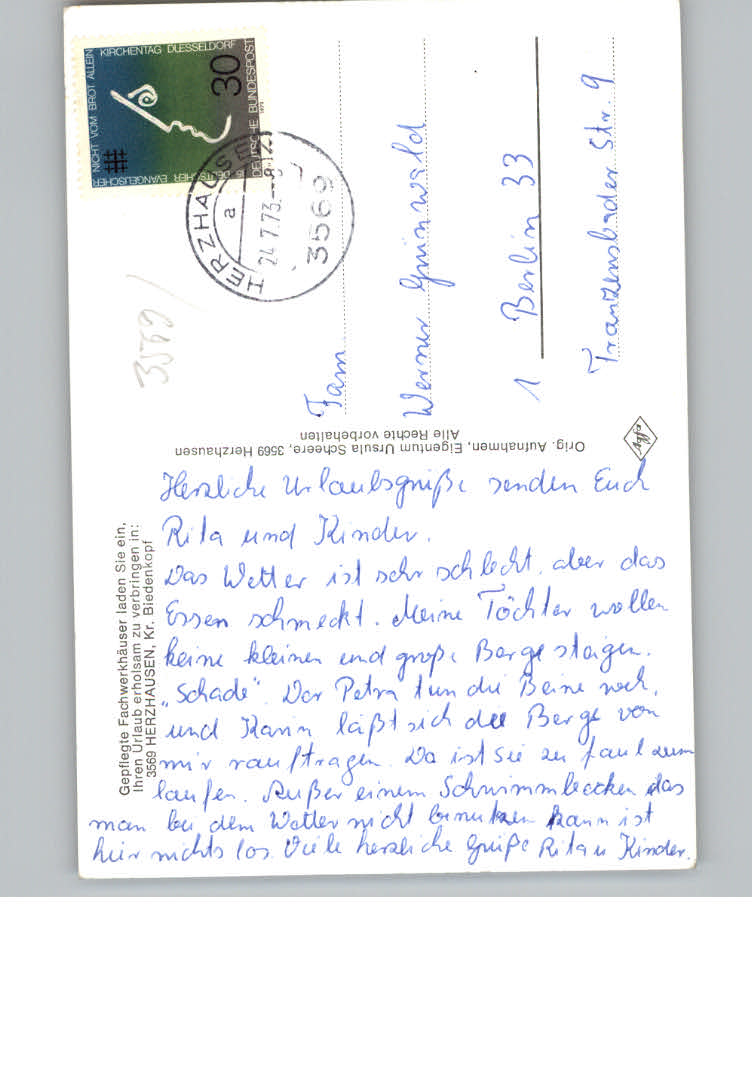 Gepflegte Fachwerkhäuser laden Sie ein,
Ihren Urlaub erholsam zu verbringen in:
3569 HERZHAUSEN, Kr. Biedenkopf
Herzliche Urlaubsgrüße senden Euch
Rita und Kinder.
Das Wetter ist sehr schlecht, aber das
Essen schmeckt. Meine Töchter wollen
keine kleinen und große Berge steigen.
„Schade". Der Petra tun die Beine weh,
und Karin läßt sich die Berge von
mir rauftragen. Da ist sie zu faul zum
laufen. Außer einem Schwimmbecken das
man bei dem Wetter nicht benutzen kann ist
hier nichts los. Viele herzliche Grüße Rita u Kinder.
Orig. Aufnahmen, Eigentum Ursula Scheere, 3569 Herzhausen
Alle Rechte vorbehalten
efbe
3569
KIRCHENTAG DUESSELDORF
NICHT VOM BROT ALLEIN
15. DEUTSCHER EVANGELISCHER
30
DEUTSCHE BUNDESPOST
1973
HERZHAUSEN
a
24.7.73.--8
3569
Fam
Werner Grünwald
1 Berlin 33
Franzensbader Str. 9